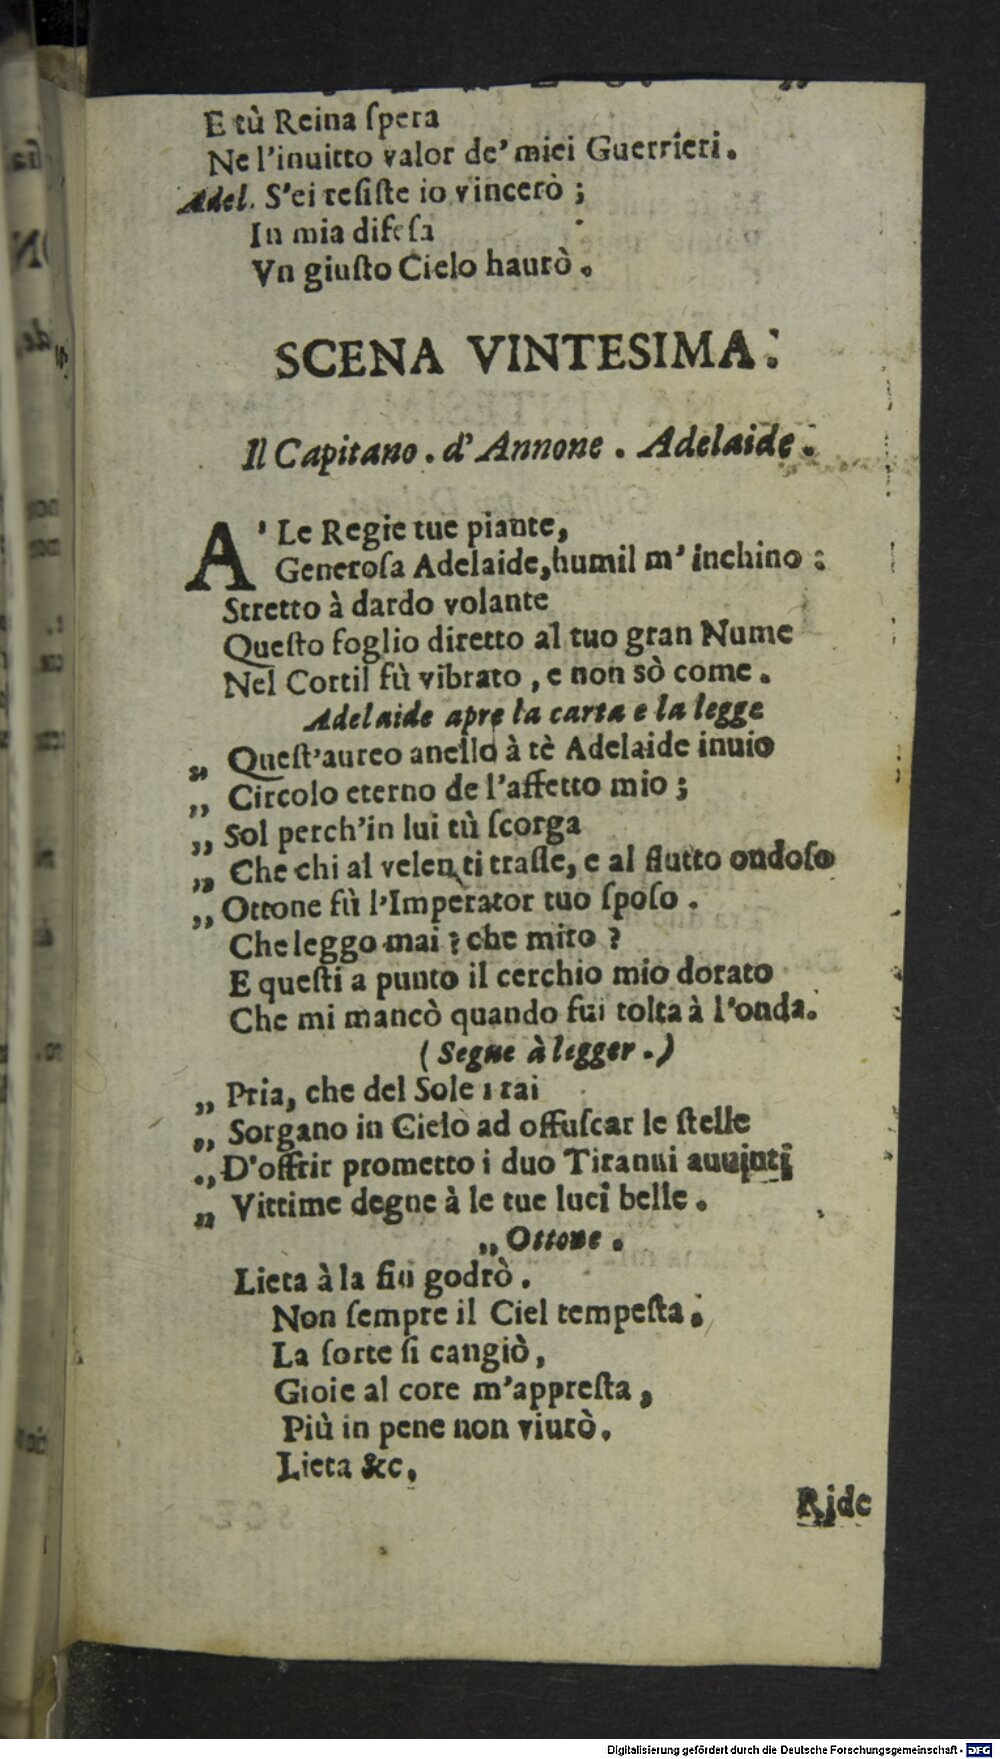 E tù Reina ſpera
Ne l'inuitto valor de' miei Guerrieri.
Adel. S'ei reſiſte io vincerò;
In mia difeſa
Vn giuſto Cielo haurò.
SCENA VINTESIMA.
Il Capitano. d'Annone. Adelaide.
A' Le Regie tue piante,
Generoſa Adelaide, humil m'inchino:
Stretto à dardo volante
Queſto foglio diretto al tuo gran Nume
Nel Cortil fù vibrato, e non sò come.
Adelaide apre la carta e la legge
„ Queſt'aureo anello à tè Adelaide inuio
„ Circolo eterno de l'affetto mio;
„ Sol perch'in lui tù ſcorga
„ Che chi al velen ti traſſe, e al flutto ondoſo
„ Ottone fù l'Imperator tuo ſpoſo.
Che leggo mai? che miro?
E queſti a punto il cerchio mio dorato
Che mi mancò quando fui tolta à l'onda.
(Segue à legger.)
„ Pria, che del Sole i rai
„ Sorgano in Cielo ad offuſcar le ſtelle
„ D'offrir prometto i duo Tiranni auuinti
„ Vittime degne à le tue luci belle.
„ Ottone.
Lieta à la fin godrò.
Non ſempre il Ciel tempeſta.
La ſorte ſi cangiò,
Gioie al core m'appreſta,
Più in pene non viurò.
Lieta &c.
Ride
Digitalisierung gefördert durch die Deutsche Forschungsgemeinschaft - DFG